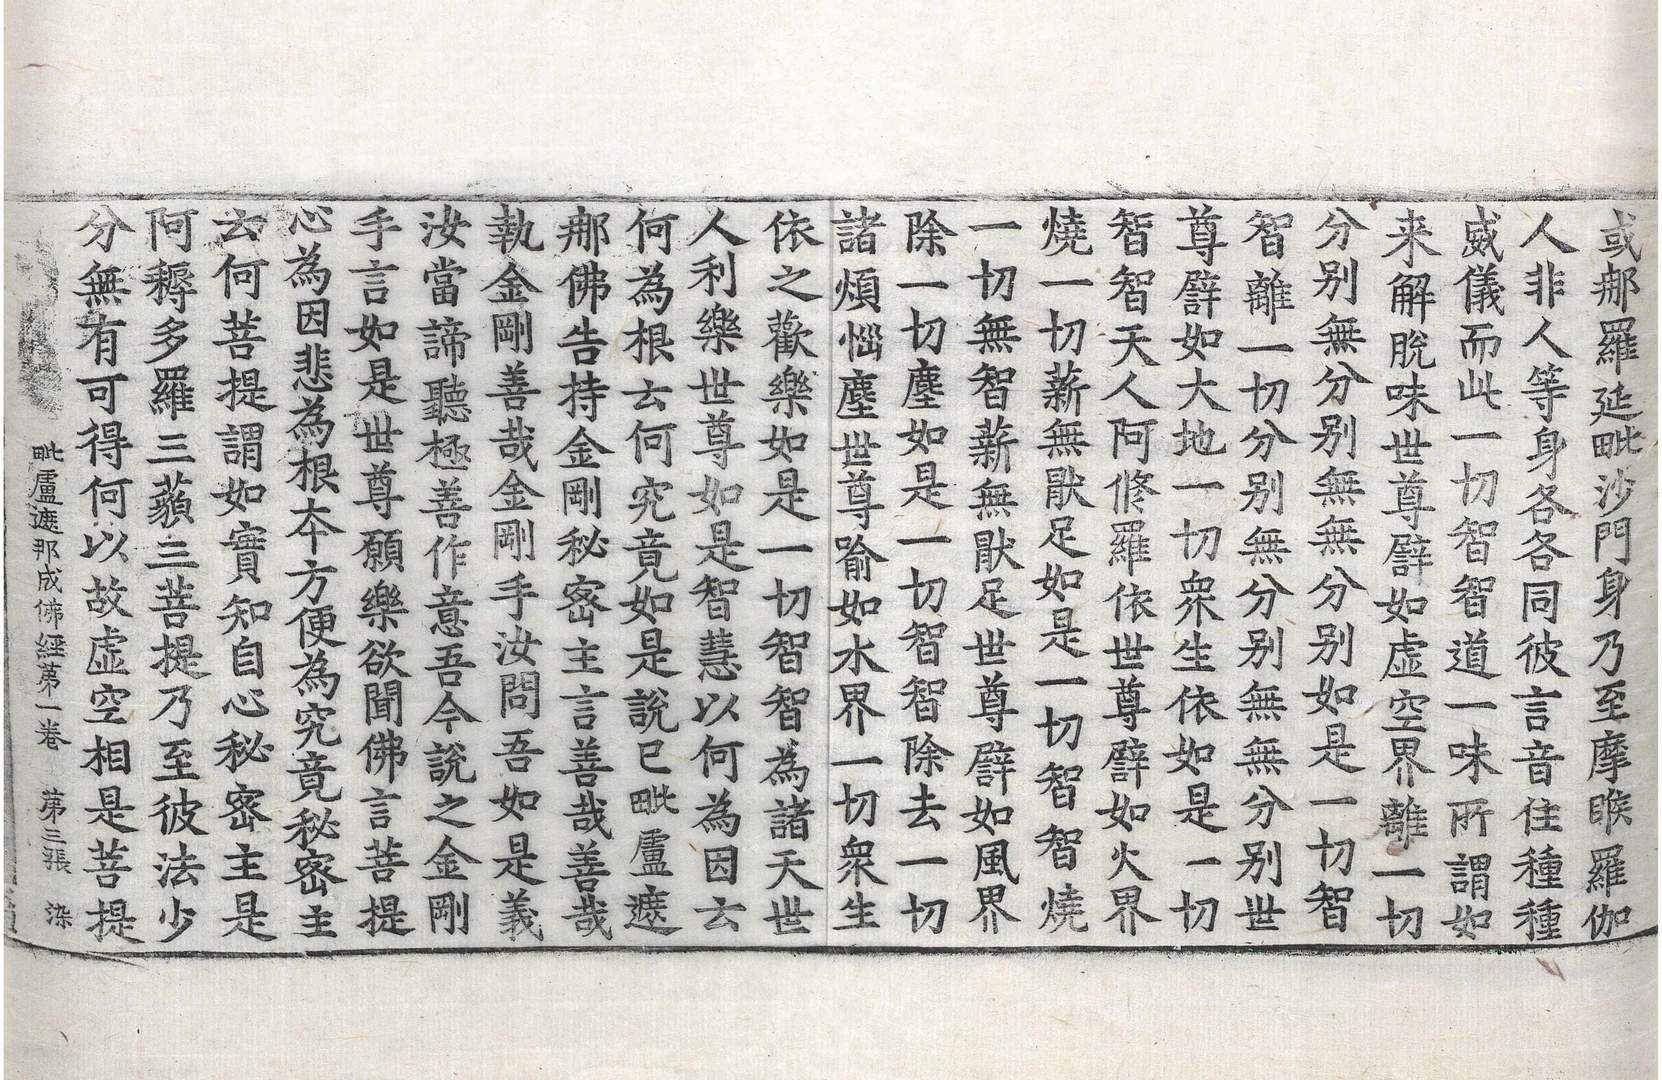 或那羅延毗沙門身乃至摩睺羅伽
人非人等身各各同彼言音住種種
威儀而此一切智智道一味所謂如
来解脫味世尊譬如虛空界離一切
分别無分别無無分别如是一切智
智離一切分别無分别無無分别世
尊譬如大地一切衆生依如是一切
智智天人阿脩羅依世尊譬如火界
燒一切薪無猒足如是一切智智燒
一切無智薪無猒足世尊譬如風界
除一切塵如是一切智智除去一切
諸煩惱塵世尊喻如水界一切衆生
依之歡樂如是一切智智為諸天世
人利樂世尊如是智慧以何為因云
何為根云何究竟如是說已毗盧遮
那佛告持金剛秘密主言善哉善哉
執金剛善哉金剛手汝問吾如是義
汝當諦聽極善作意吾今說之金剛
手言如是世尊願樂欲聞佛言菩提
心為因悲為根夲方便為究竟秘密主
云何菩提謂如實知自心秘密主是
阿耨多羅三藐三菩提乃至彼法少
分無有可得何以故虛空相是菩提
毗盧遮那成佛經苐一卷 苐三張 染